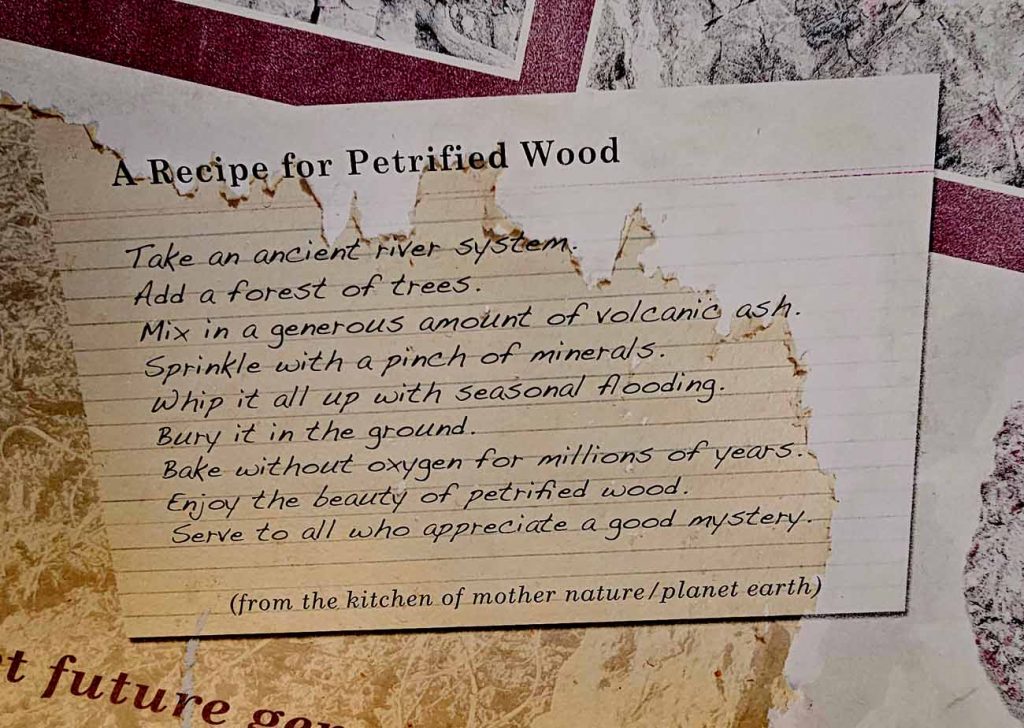 A Recipe for Petrified Wood
Take an ancient river system.
Add a forest of trees.
Mix in a generous amount of volcanic ash.
Sprinkle with a pinch of minerals.
Whip it all up with seasonal flooding.
Bury it in the ground.
Bake without oxygen for millions of years.
Enjoy the beauty of petrified wood.
Serve to all who appreciate a good mystery.
(from the kitchen of mother nature/planet earth)
future